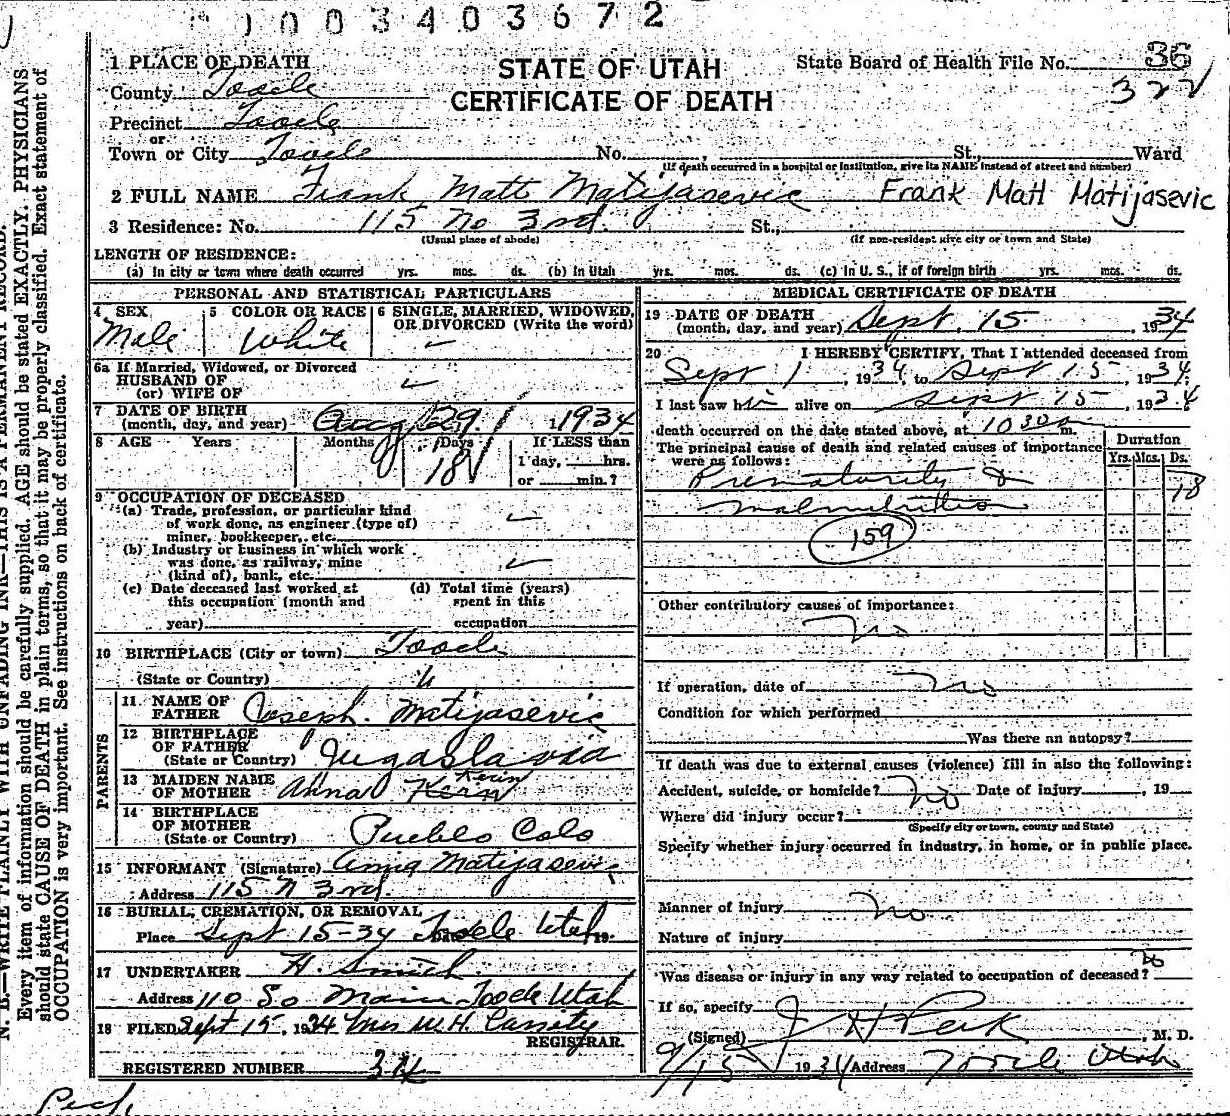 0003403672
1 PLACE OF DEATH
STATE OF UTAH
State Board of Health File No. 36
County Tooele
CERTIFICATE OF DEATH
322
Precinct Tooele
or
Town or City Tooele No. St., Ward
(If death occurred in a hospital or institution, give its NAME instead of street and number)
2 FULL NAME Frank Matt Matijasevic Frank Matt Matijasevic
3 Residence: No. 115 No 3rd. St.,
(Usual place of abode) (If non-resident give city or town and State)
LENGTH OF RESIDENCE:
(a) In city or town where death occurred yrs. mos. ds. (b) In Utah yrs. mos. ds. (c) In U. S., if of foreign birth yrs. mos. ds.
PERSONAL AND STATISTICAL PARTICULARS
4 SEX 5 COLOR OR RACE 6 SINGLE, MARRIED, WIDOWED,
OR DIVORCED (Write the word)
Male White
6a If Married, Widowed, or Divorced
HUSBAND OF
(or) WIFE OF
7 DATE OF BIRTH
(month, day, and year) Aug 29. 1934
8 AGE Years Months Days If LESS than
1 day, hrs.
18 or min.?
9 OCCUPATION OF DECEASED
(a) Trade, profession, or particular kind
of work done, as engineer (type of)
miner, bookkeeper, etc.
(b) Industry or business in which work
was done, as railway, mine
(kind of), bank, etc.
(c) Date deceased last worked at (d) Total time (years)
this occupation (month and spent in this
year) occupation
10 BIRTHPLACE (City or town) Tooele
(State or Country) "
PARENTS
11. NAME OF
FATHER Joseph. Matijasevic
12 BIRTHPLACE
OF FATHER
(State or Country) Jugaslavia
13 MAIDEN NAME Kerin
OF MOTHER Anna Kerin
14 BIRTHPLACE
OF MOTHER
(State or Country) Pueblo Colo
15 INFORMANT (Signature) Anna Matijasevic
Address 115 N 3rd.
16 BURIAL, CREMATION, OR REMOVAL
Place Sept 15-34 Date Tooele Utah 19
17 UNDERTAKER H. Smith
Address 110 So Main Tooele Utah
18 FILED Sept 15, 1934 Mrs W. H. Cassity
REGISTRAR.
REGISTERED NUMBER 34
MEDICAL CERTIFICATE OF DEATH
19 DATE OF DEATH
(month, day, and year) Sept. 15, 1934
20 I HEREBY CERTIFY, That I attended deceased from
Sept 1, 1934, to Sept 15, 1934
I last saw him alive on Sept 15, 1934
death occurred on the date stated above, at 10 30 a m.
The principal cause of death and related causes of importance
were as follows:
Duration
Yrs. Mos. Ds.
Prematurity &
18
malnutrition
159
Other contributory causes of importance:
No
If operation, date of No
Condition for which performed
Was there an autopsy?
If death was due to external causes (violence) fill in also the following:
Accident, suicide, or homicide? No Date of injury , 19
Where did injury occur?
(Specify city or town, county and State)
Specify whether injury occurred in industry, in home, or in public place.
Manner of injury No
Nature of injury
Was disease or injury in any way related to occupation of deceased? No
If so, specify
(Signed) J H Peck, M. D.
9/15 1934 Address Tooele Utah
N. B.—WRITE PLAINLY WITH UNFADING INK—THIS IS A PERMANENT RECORD.
Every item of information should be carefully supplied. AGE should be stated EXACTLY. PHYSICIANS
should state CAUSE OF DEATH in plain terms, so that it may be properly classified. Exact statement of
OCCUPATION is very important. See instructions on back of certificate.
Peck